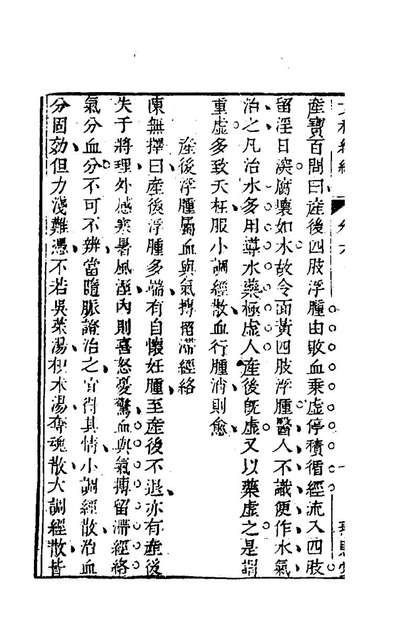 產寶百問曰產後四肢浮腫由敗血乘虛停積循經流入四肢
留淫日深腐壞如水故令面黃四肢浮腫醫人不識便作水氣
治之凡治水多用導水藥極虛人產後旣虛又以藥虛之是謂
重虛多致夭枉服小調經散血行腫消則愈
產後浮腫屬血與氣搏留滯經絡
陳無擇曰產後浮腫多端有自懷妊腫至產後不退亦有產後
失于將理外感寒暑風濕內則喜怒憂驚血與氣搏留滯經絡
氣分血分不可不辨當隨脈證治之宜得其情小調經散治血
分固効但力淺難憑不若吳茱湯枳朮湯奪魂散大調經散皆